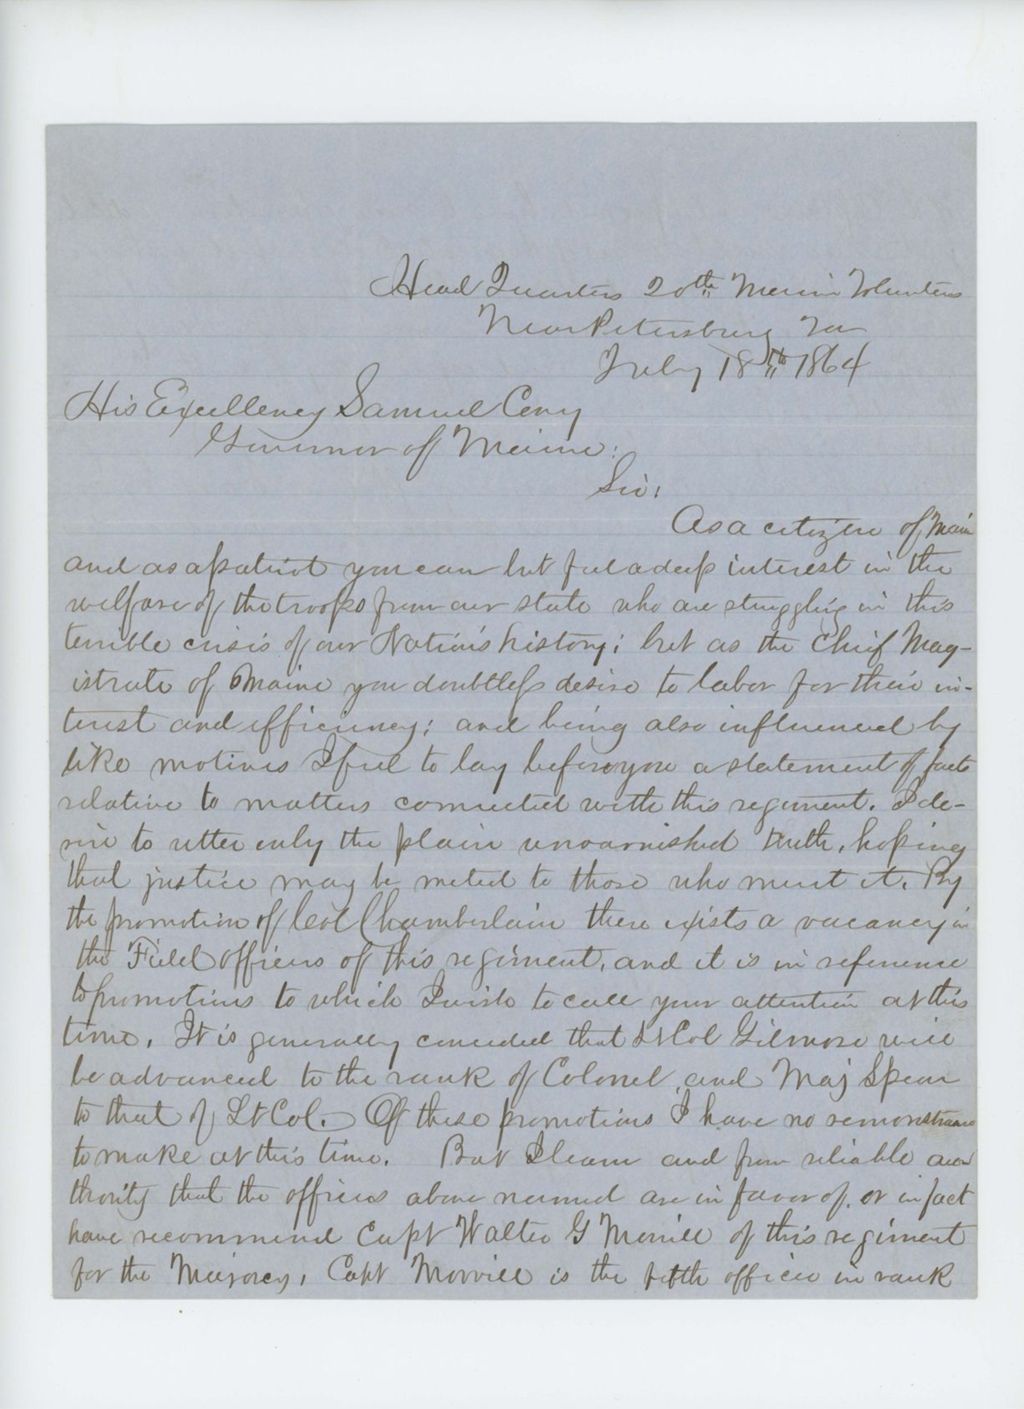 Head Quarters 20th Maine Volunteers
Near Petersburg Va
July 18th 1864
His Excellency Samuel Cony
Governor of Maine:
Sir:
As a citizen of Maine
and as a patriot you can but feel a deep interest in the
welfare of the troops from our state who are struggling in this
terrible crisis of our Nation's history; but as the Chief Mag-
istrate of Maine you doubtless desire to labor for their in-
terest and efficiency; and being also influenced by
like motives I feel to lay before you a statement of facts
relative to matters connected with this regiment. I de-
sire to utter only the plain unvarnished truth, hoping
that justice may be meted to those who merit it. By
the promotion of Col Chamberlain there exists a vacancy in
the Field officers of this regiment, and it is in reference
to promotions to which I wish to call your attention at this
time. It is generally conceded that Lt Col Gilmore will
be advanced to the rank of Colonel, and Maj Spear
to that of Lt Col. Of these promotions I have no remonstrance
to make at this time. But I learn and from reliable au
thority that the officers above named are in favor of, or in fact
have recommend Capt Walter G Morrill of this regiment
for the Majorcy, Capt Morrill is the fifth officer in rank